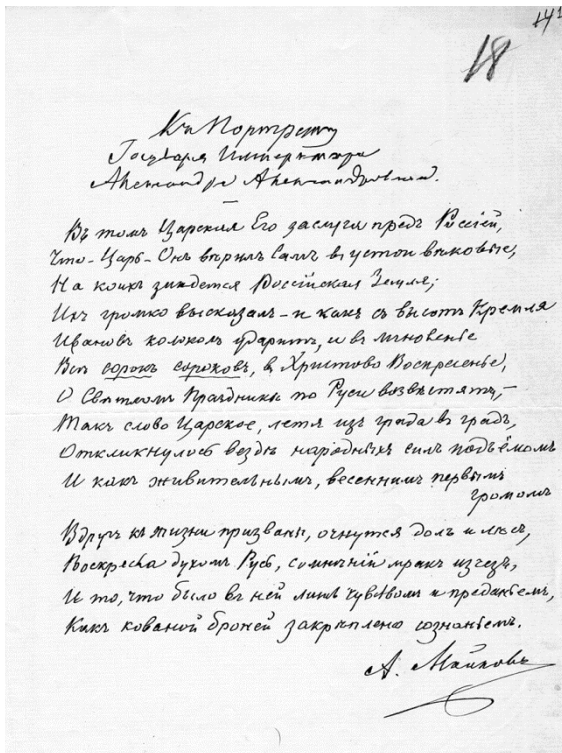 141
18
Къ Портрету
Государя Императора
Александра Александровича.
Въ томъ Царския Его заслуга предъ Россіей,
Что – Царь – Онъ вѣрилъ Самъ въ устои вѣковые,
На коихъ зиждется Россійская Земля;
Ихъ громко высказалъ – и какъ съ высотъ Кремля
Ивановъ колоколъ ударитъ, и въ мгновенье
Всѣ сорокъ сороковъ, въ Христово Воскресенье,
О Свѣтломъ Праздникѣ по Руси возвѣстятъ, –
Такъ слово Царское, летя изъ града въ градъ,
Откликнулось вездѣ народныхъ силъ подъёмомъ
И какъ живительнымъ, весеннимъ первымъ
громомъ
Вдругъ къ жизни призваны, очнутся долъ и лѣсъ,
Воскресла духомъ Русь, сомнѣній мракъ изчезъ,
И то, что было въ ней лишь чувствомъ и преданьемъ,
Какъ кованой броней закрѣплено сознаньемъ.
А. Майковъ